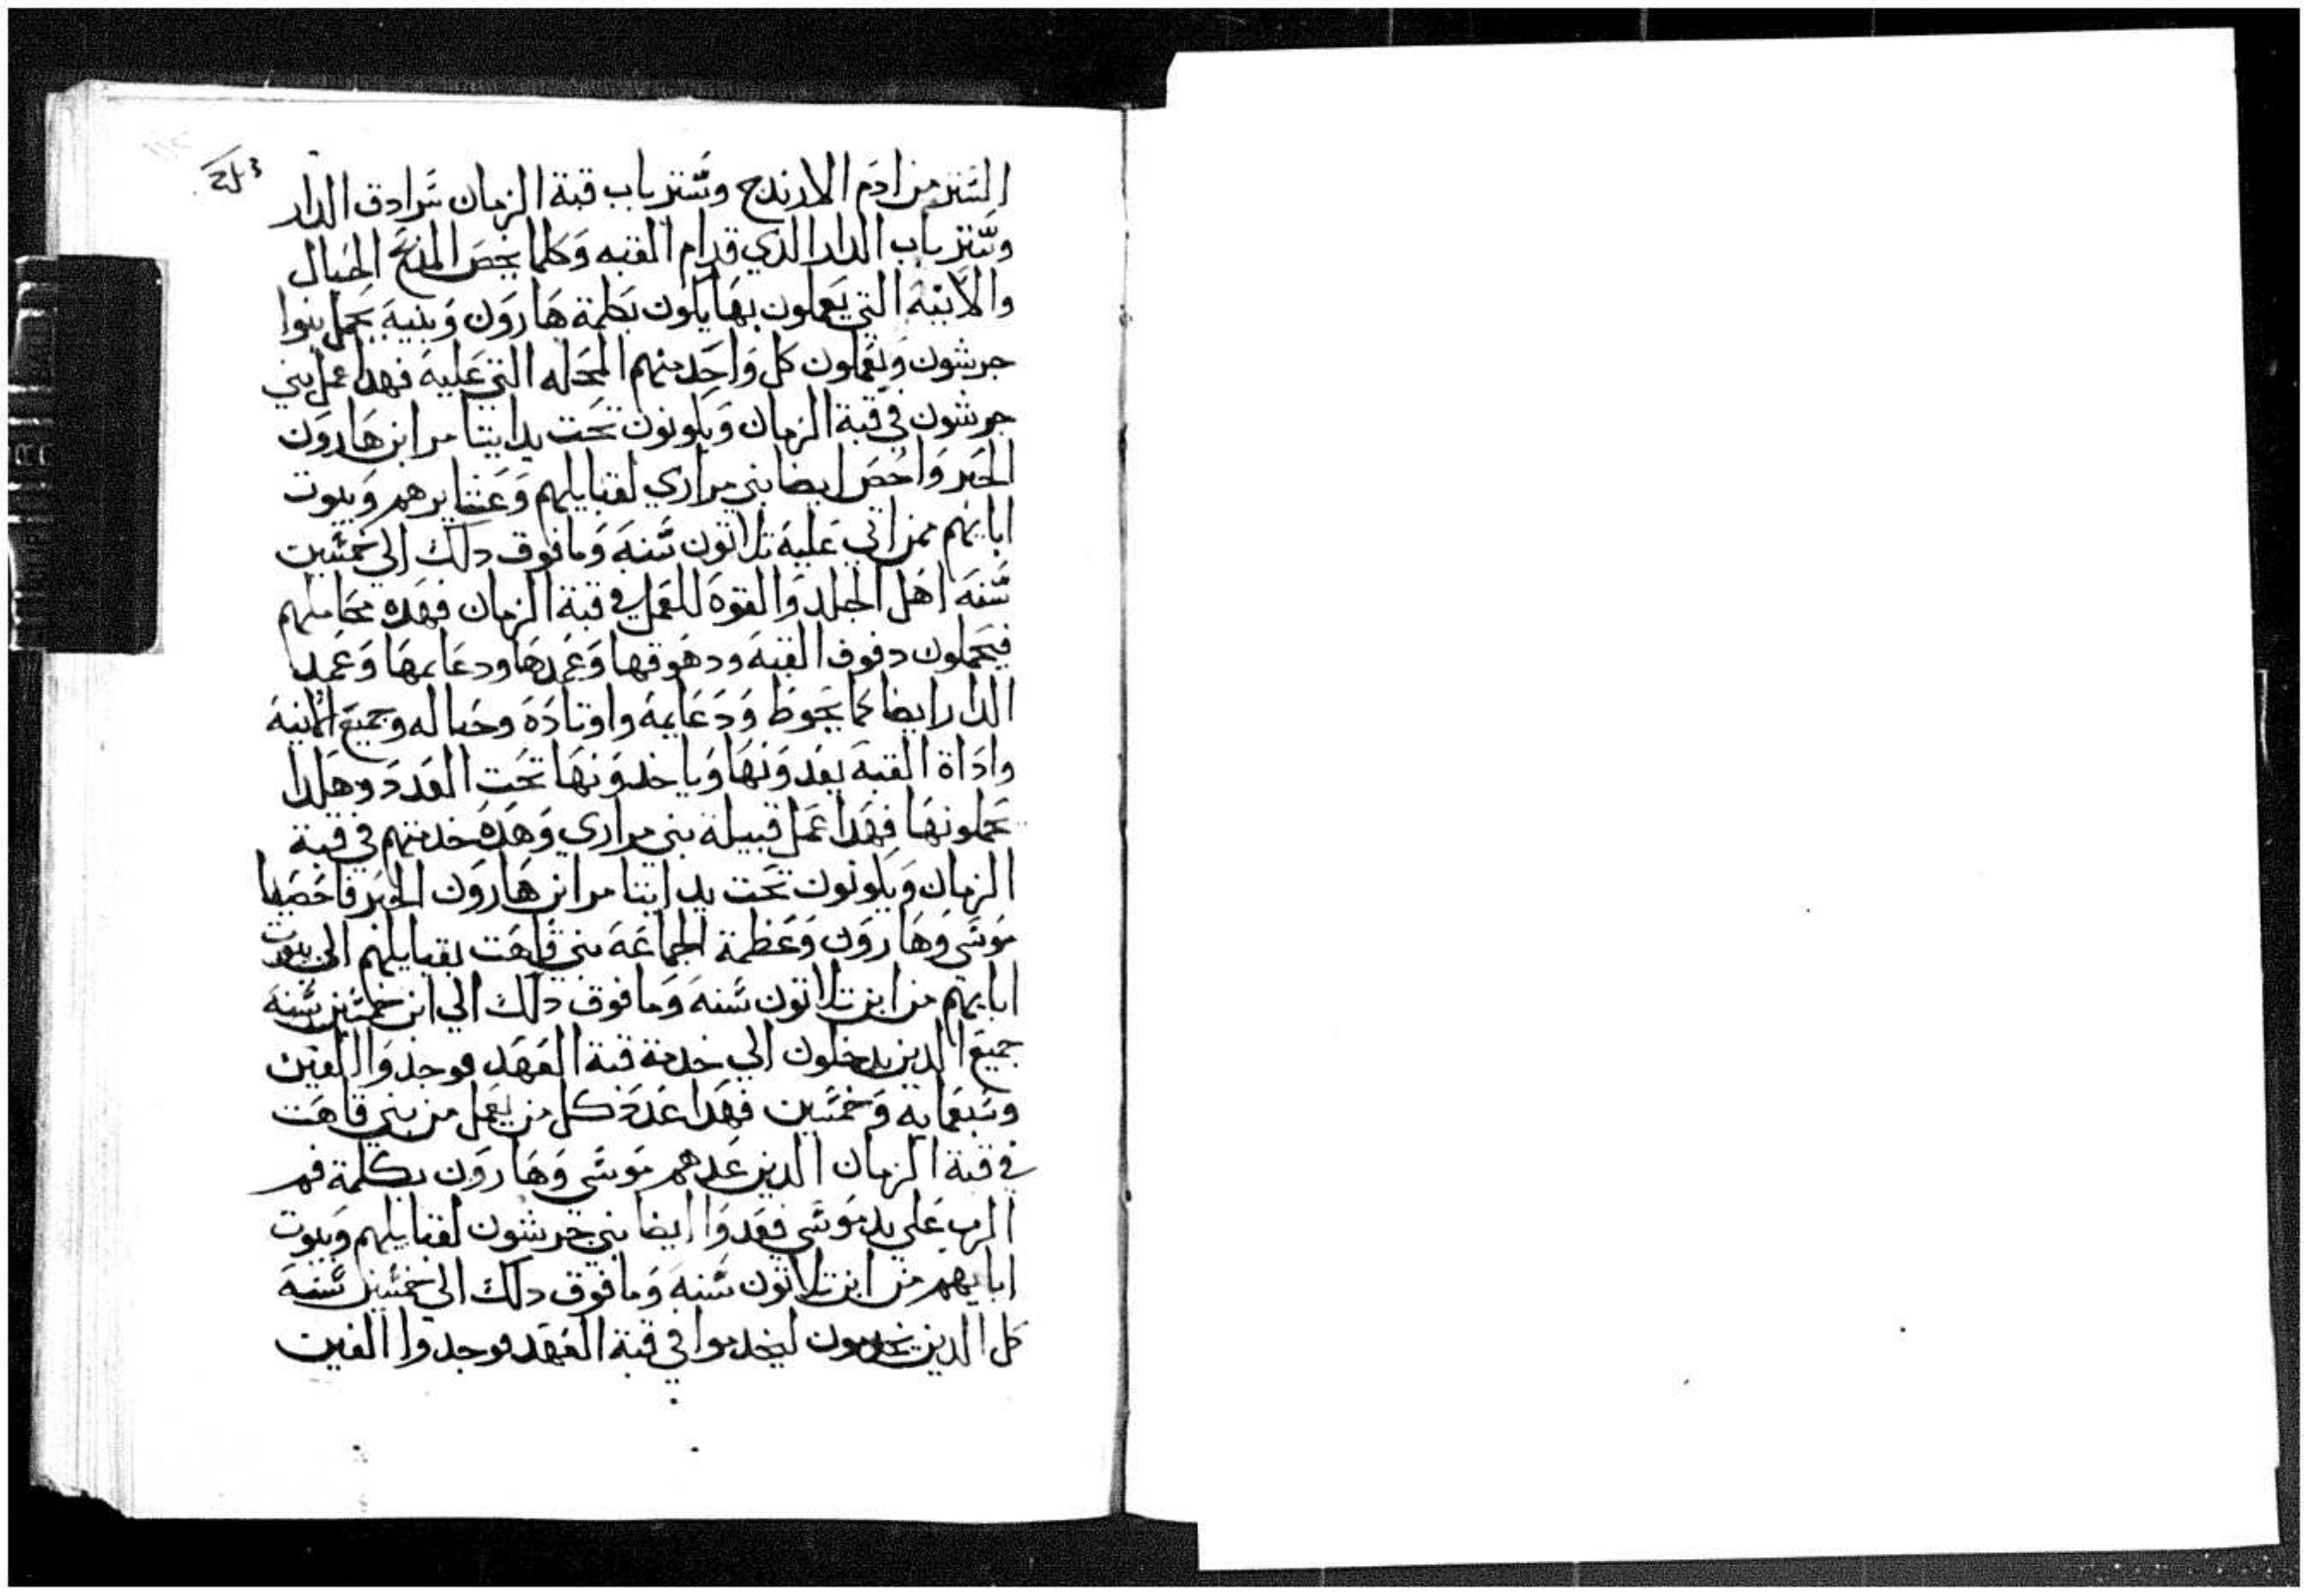 الستر من ادم الارندج وستر باب قبة الزمان سرادق الدار
وستر باب الدار الذي قدام القبه وكلما يخص المدبح الحبال
والانيه التي يعملون بها يكون بكلمة هارون وبنيه يحمل بنوا
جرشون ويعملون كل واحد منهم المحله التي عليه فهدا عمل بني
جرشون في قبة الزمان ويكونون تحت يد ايتامر ابن هارون
الحبر واحص ايضا بني مراري لقبايلهم وعشايرهم وبيوت
ابايهم ممن اتي عليه تلاتون سنه وما فوق دلك الي خمسين
سنه اهل الجلد والقوه للعمل في قبة الزمان فهده محاملهم
فيحملون دفوف القبه ودهوقها وعمدها ودعايمها وعمد
الدار ايضا كما يحوط ودعايمه واوتاده وحباله وجميع الانية
واداة القبه يعدونها وياخدونها تحت العدد وهكدا
يحملونها فهدا عمل قبيلة بني مراري وهده خدمتهم في قبة
الزمان ويكونون تحت يد ايتامر ابن هارون الحبر فاحصا
موسي وهارون وعظمة الجماعه بني قاهت بقبايلهم الي بيوت
ابايهم من ابن تلاتون سنه وما فوق دلك الي ابن خمسين سنه
جميع الدين يدخلون الي خدمة قبة العهد فوجدوا الفين
وسبعمايه وخمسين فهدا عدد كل من يعمل من بني قاهت
في قبة الزمان الدين عدهم موسي وهارون بكلمة فم
الرب علي يد موسي فعدوا ايضا بني جرشون لقبايلهم وبيوت
ابايهم من ابن تلاتون سنه وما فوق دلك الي خمسين سنه
كل الدين يخدمون ليخدموا في قبة العهد فوجدوا الفين